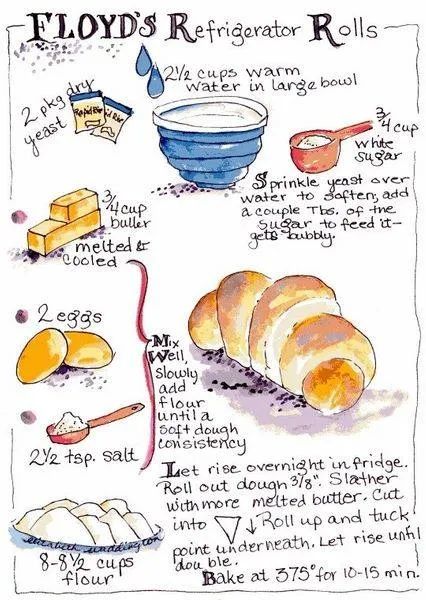 FLOYD'S Refrigerator Rolls
2 pkg dry
yeast
Rapid Rise
2½ cups warm
water in large bowl
¾ cup
white
sugar
Sprinkle yeast over
water to soften, add
a couple Tbs. of the
Sugar to feed it—
gets bubbly.
¾ cup
butter
melted &
cooled
2 eggs
2½ tsp. salt
8-8½ cups
flour
Mix
Well,
Slowly
add
flour
until a
soft dough
consistency
Let rise overnight in fridge.
Roll out dough ⅜". Slather
with more melted butter. Cut
into Roll up and tuck
point underneath. Let rise until
double.
Bake at 375° for 10-15 min.